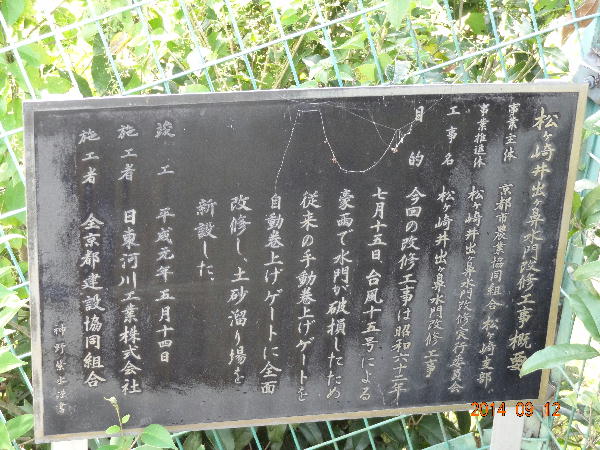 松ヶ崎井出ヶ鼻水門改修工事概要
事業主体 京都市農業協同組合 松ヶ崎支部
事業推進体 松ヶ崎井出ヶ鼻水門改修実行委員会
工事名 松ヶ崎井出ヶ鼻水門改修工事
目的 今回の改修工事は昭和六十二年
七月十五日、台風十五号による
豪雨で水門が破損したため
従来の手動巻上げゲートを
自動巻上げゲートに全面
改修し、土砂溜り場を
新設した。
竣工 平成元年五月十四日
施工者 日東河川工業株式会社
施工者 全京都建設協同組合
神野
書
2014 09 12